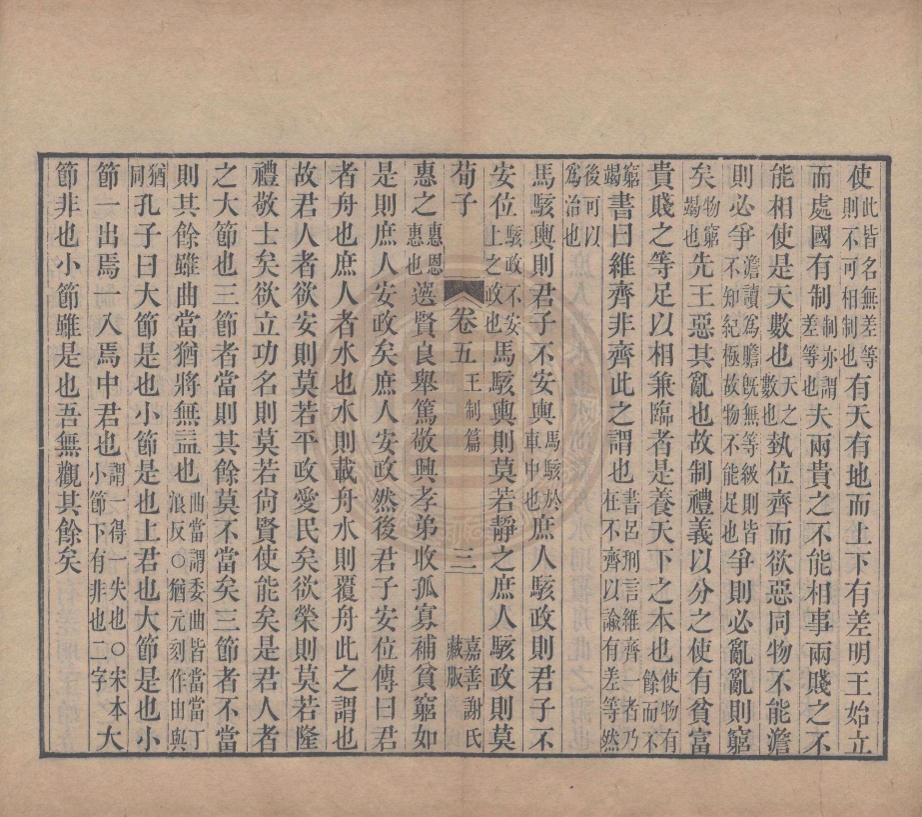 使此皆名無差等則不可相制也有天有地而上下有差明王始立
而處國有制制亦謂差等也夫兩貴之不能相事兩賤之不
能相使是天數也天之數也埶位齊而欲惡同物不能澹
則必爭澹讀爲贍旣無等級則皆不知紀極故物不能足也爭則必亂亂則窮
矣物窮竭也先王惡其亂也故制禮義以分之使有貧富
貴賤之等足以相兼臨者是養天下之本也使物有餘而不
窮竭書曰維齊非齊此之謂也書呂刑言維齊一者乃在不齊以諭有差等然
後可以爲治也
馬駭輿則君子不安輿馬駭於車中也庶人駭政則君子不
安位駭政不安上之政也馬駭輿則莫若靜之庶人駭政則莫
荀子 卷五 王制篇 三 嘉善謝氏藏版
惠之惠恩惠也選賢良舉篤敬興孝弟收孤寡補貧窮如
是則庶人安政矣庶人安政然後君子安位傳曰君
者舟也庶人者水也水則載舟水則覆舟此之謂也
故君人者欲安則莫若平政愛民矣欲榮則莫若隆
禮敬士矣欲立功名則莫若尙賢使能矣是君人者
之大節也三節者當則其餘莫不當矣三節者不當
則其餘雖曲當猶將無益也曲當謂委曲皆當當丁浪反○猶元刻作由與
猶同孔子曰大節是也小節是也上君也大節是也小
節一出焉一入焉中君也謂一得一失也○宋本小節下有非也二字大
節非也小節雖是也吾無觀其餘矣